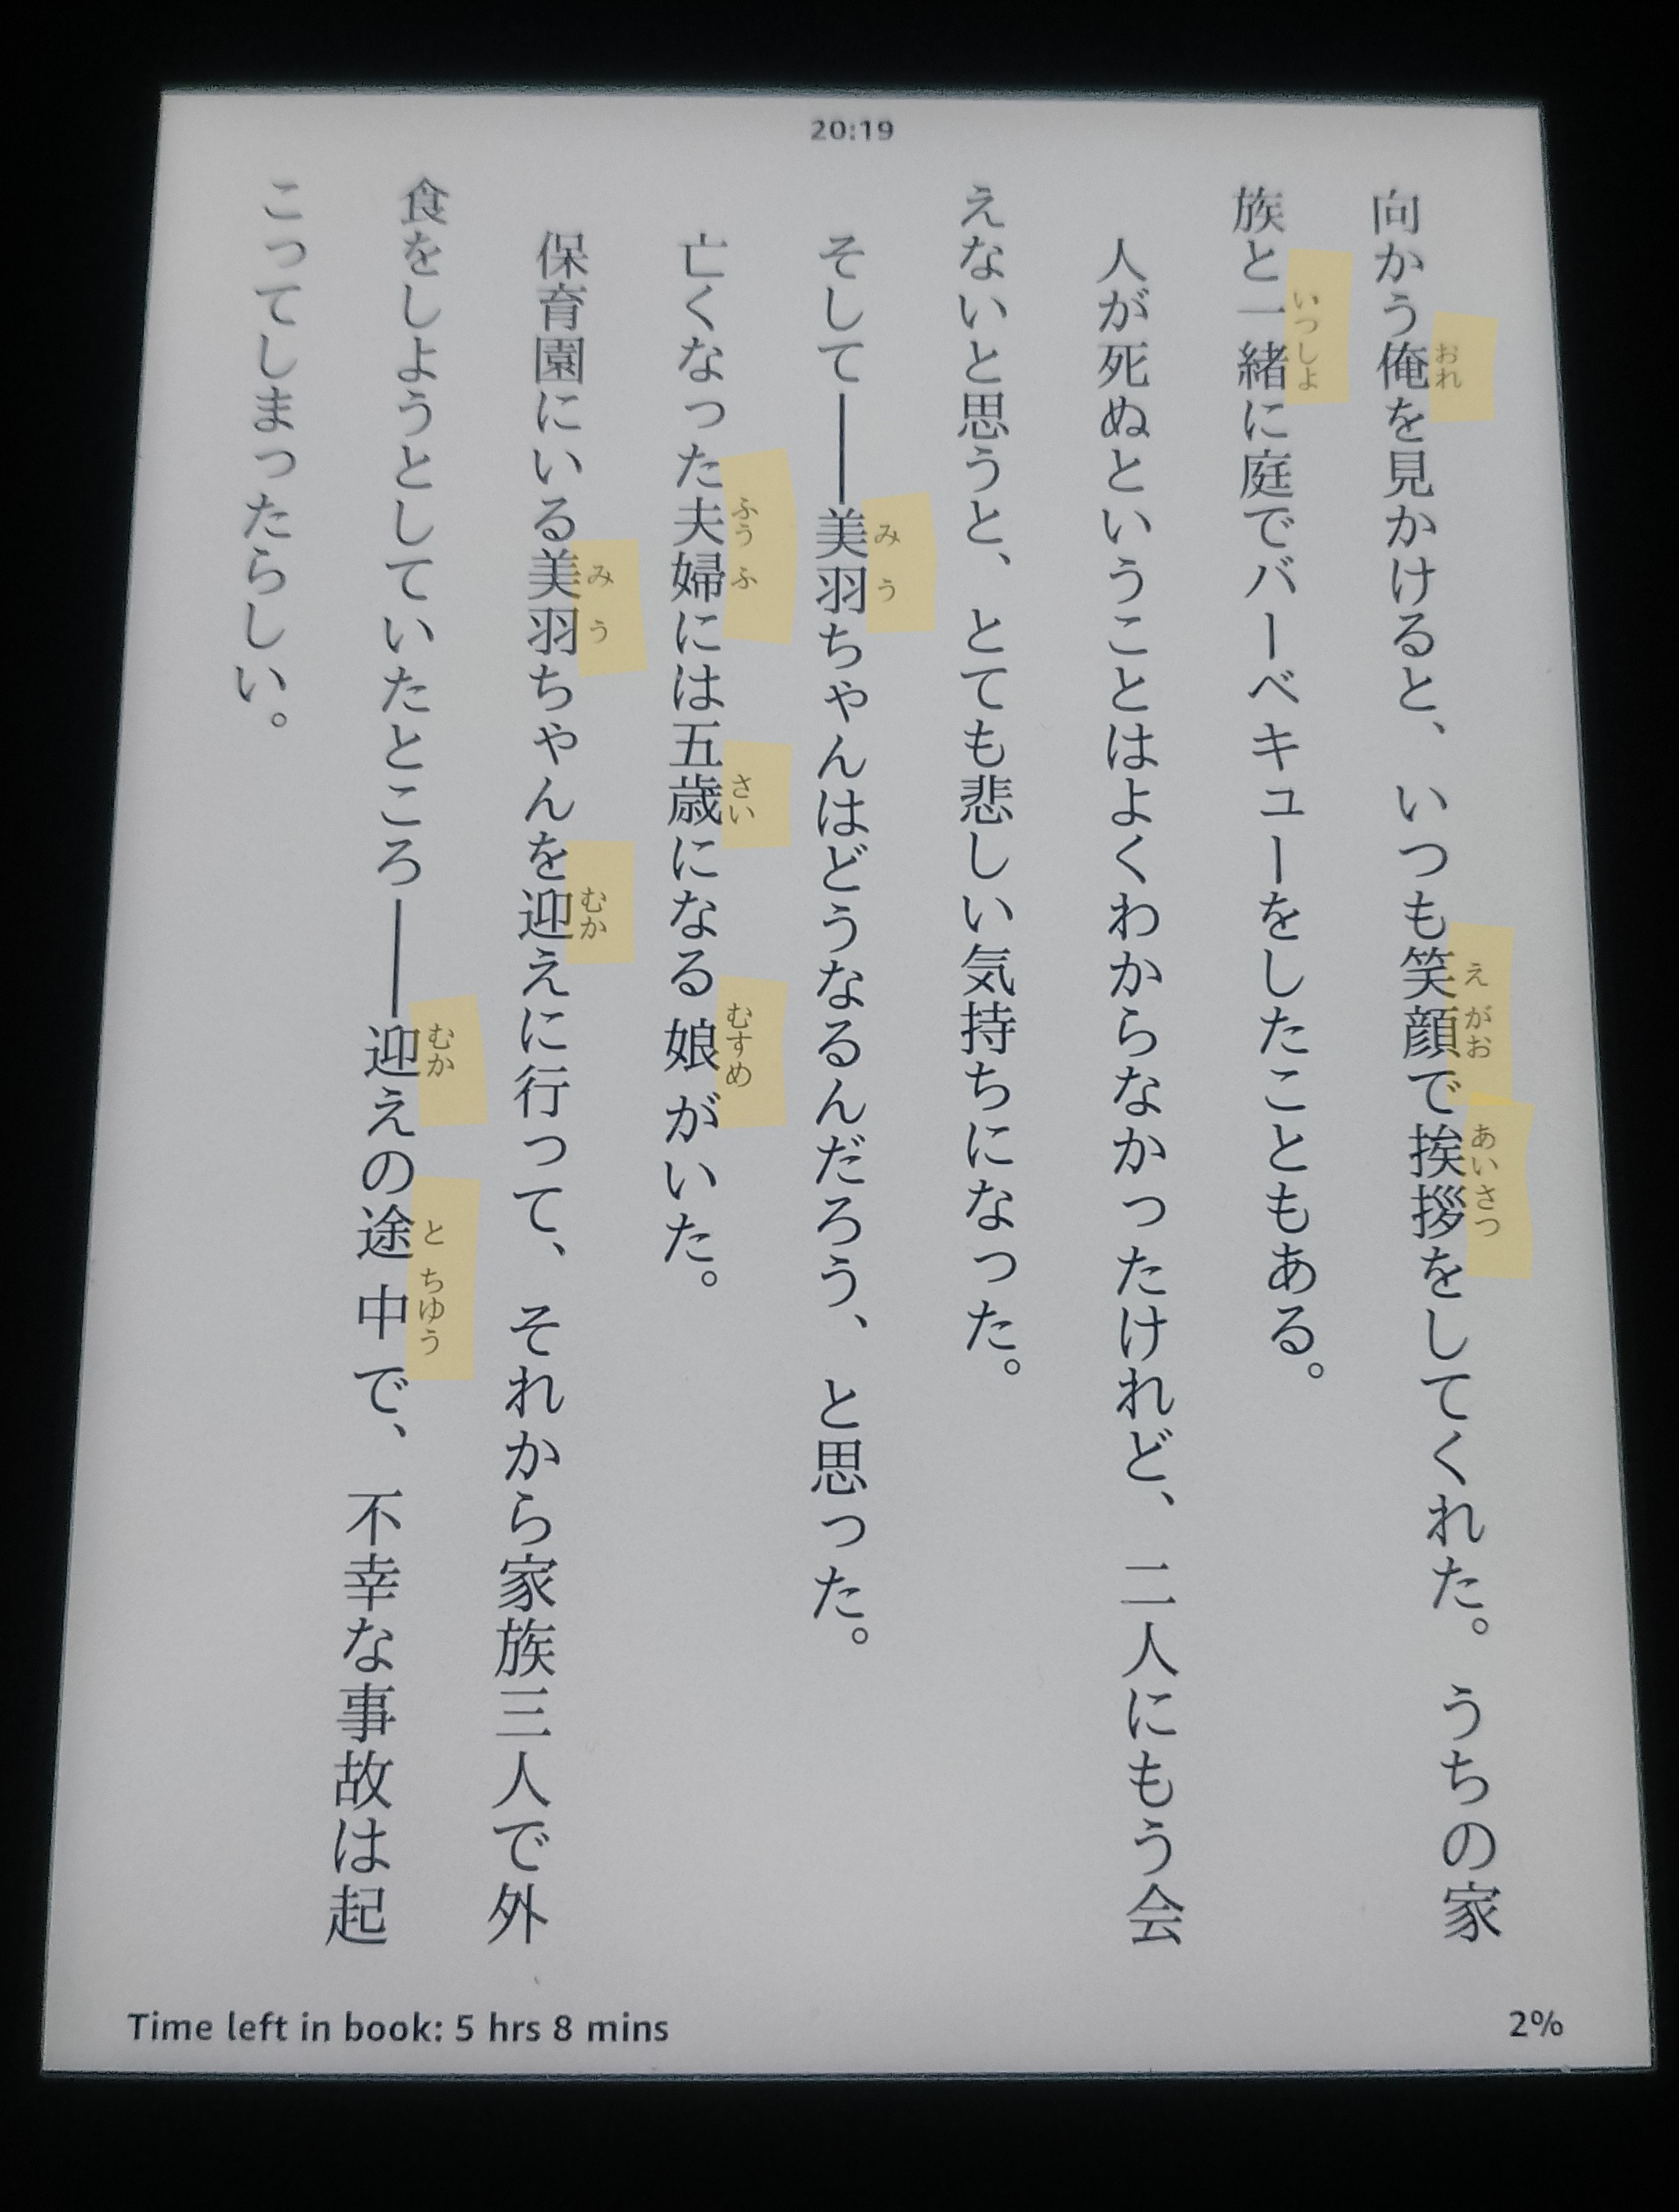 20:19
向かう俺を見かけると、いつも笑顔で挨拶をしてくれた。うちの家
おれ
えがお
あいさつ
族と一緒に庭でバーベキューをしたこともある。
いつしよ
人が死ぬということはよくわからなかったけれど、二人にもう会
えないと思うと、とても悲しい気持ちになった。
そして――美羽ちゃんはどうなるんだろう、と思った。
みう
亡くなった夫婦には五歳になる娘がいた。
ふうふ
さい
むすめ
保育園にいる美羽ちゃんを迎えに行って、それから家族三人で外
みう
むか
食をしようとしていたところ――迎えの途中で、不幸な事故は起
むか
とちゆう
こってしまったらしい。
Time left in book: 5 hrs 8 mins
2%